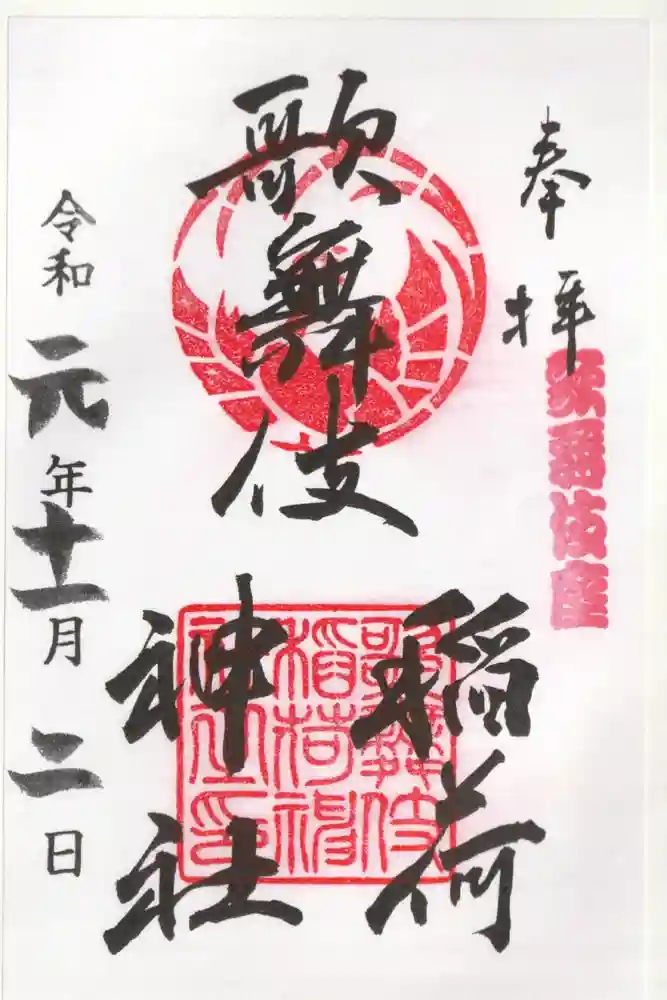 奉拝
歌舞伎座
歌舞伎
稲荷
神社
歌舞伎
稲荷神
社之印
令和元年十一月二日